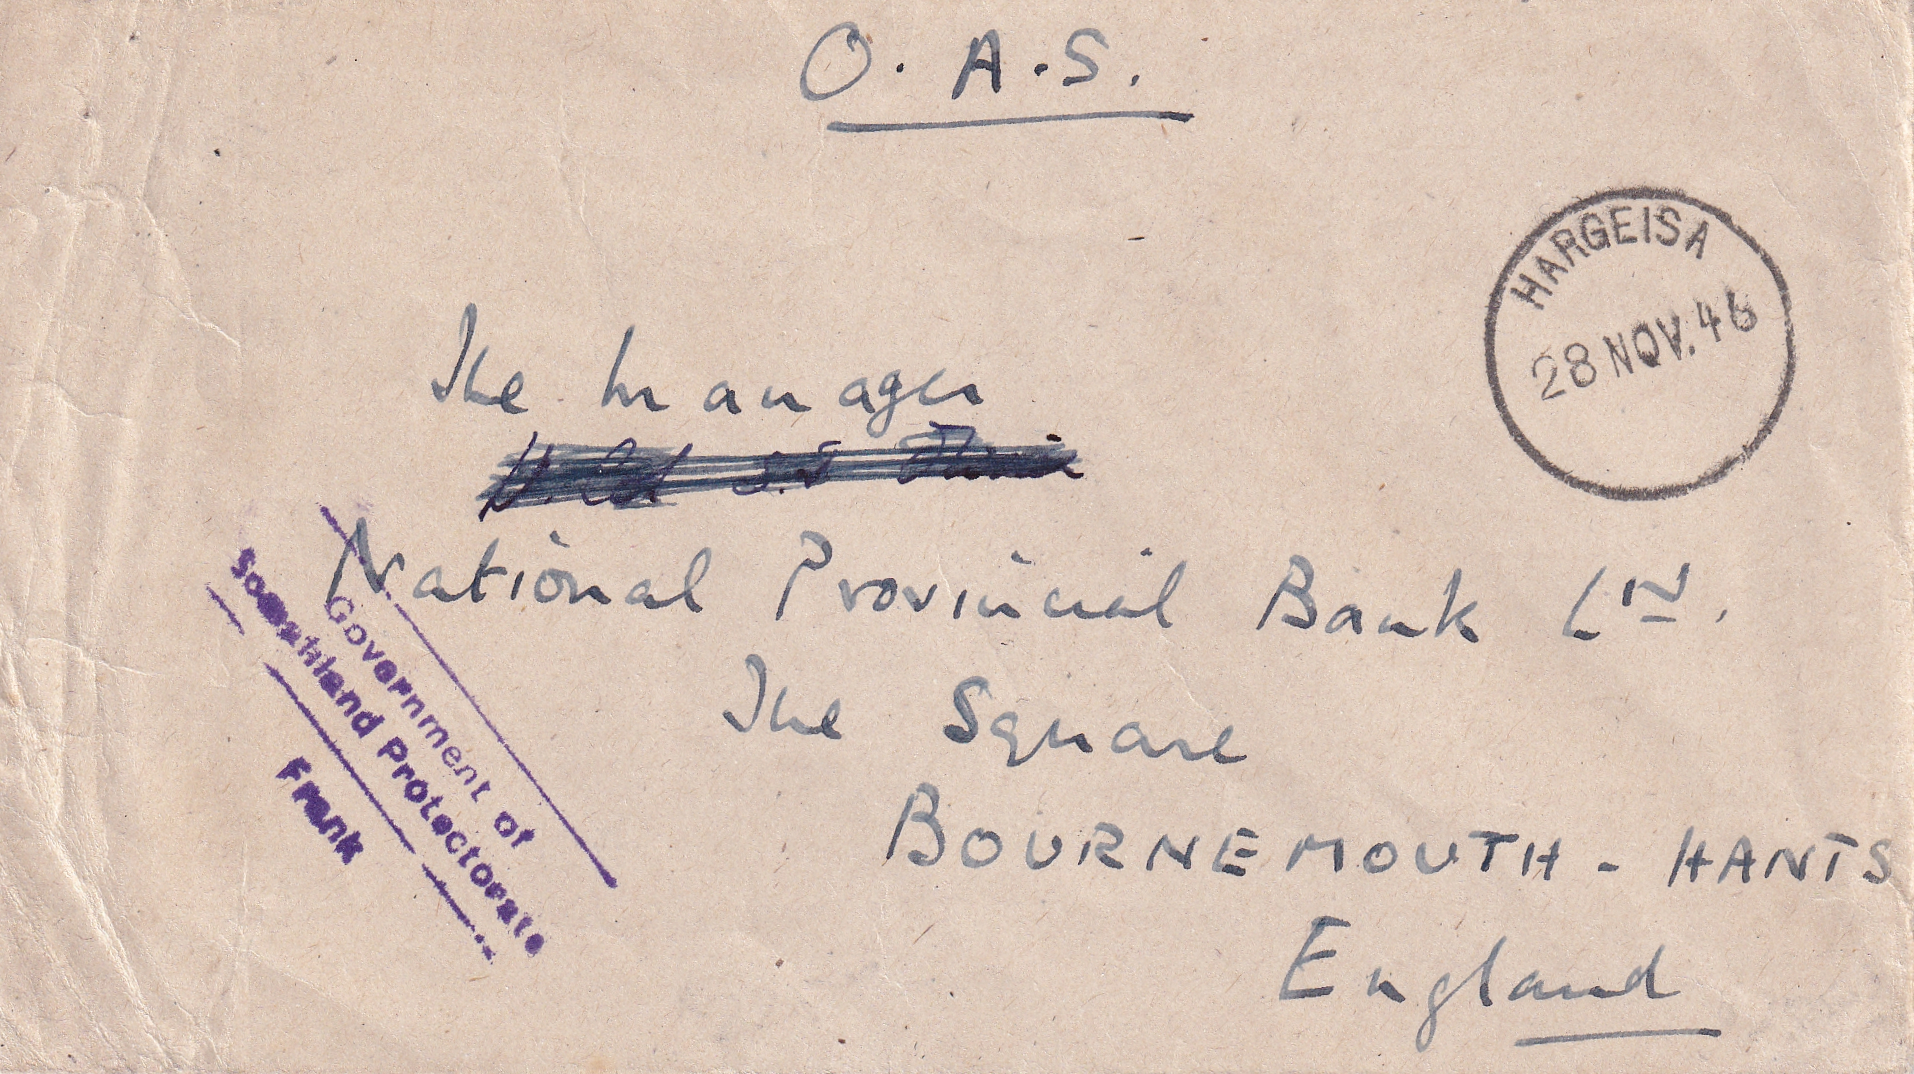 O. A. S.
HARGEISA
28 NOV. 46
The Manager
National Provincial Bank Ltd.
The Square
BOURNEMOUTH - HANTS
England
Government of
Somaliland Protectorate
Frank